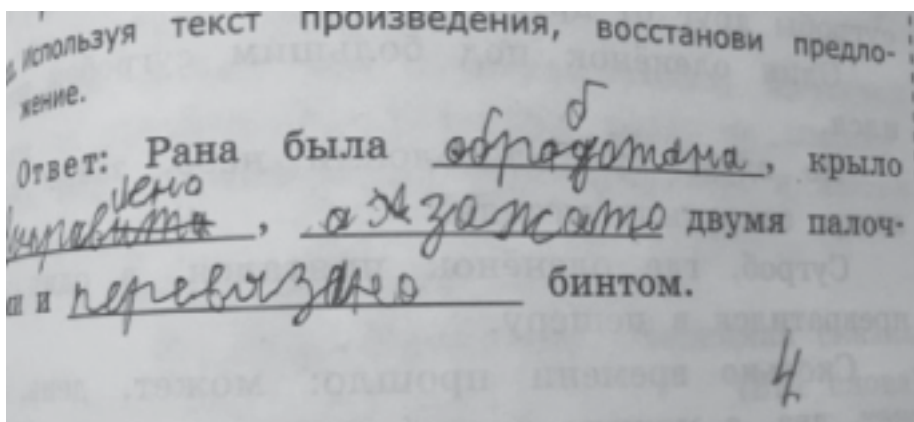 Используя текст произведения, восстанови предло-
жение.
б
Ответ: Рана была обработана, крыло
лено
, зажато двумя палоч-
и и перевязано бинтом.
4